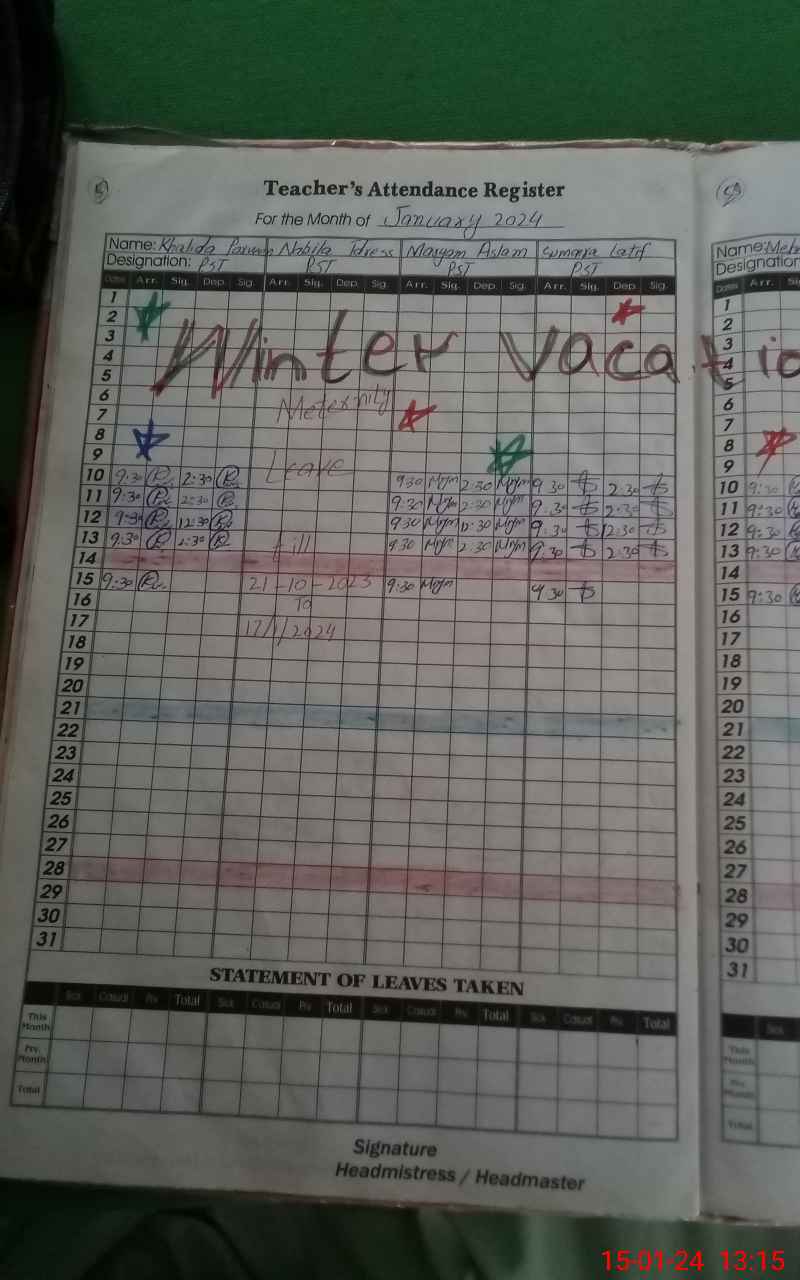 Teacher's Attendance Register
For the Month of January 2024
Name: Khalida Parveen Nabila Idress Maryam Aslam Sumaira Latif
Designation: PST PST PST PST
Dates Arr. Sig. Dep. Sig. Arr. Sig. Dep. Sig. Arr. Sig. Dep. Sig. Arr. Sig. Dep. Sig.
1
2
3
Winter Vacatio
4
5
6
Meternity
7
8
9
Leave
10 9:30 2:30 930 Mrym 2:30 Mrym 9 30 2:30
11 9:30 2:30 9:30 Mrym 2:30 Mrym 9:30 2:30
12 9:30 12:30 9:30 Mrym 12:30 Mrym 9:30 12:30
13 9:30 2:30 till 9:30 Mrym 2:30 Mrym 9:30 2:30
14
15 9:30 21-10-2023 9:30 Mrym 9 30
16 To
17 17/1/2024
18
19
20
21
22
23
24
25
26
27
28
29
30
31
STATEMENT OF LEAVES TAKEN
Sick Casual Prv. Total Sick Casual Prv. Total Sick Casual Prv. Total Sick Casual Prv. Total
This Month
Prv. Month
Total
Signature
Headmistress / Headmaster
Name: Meh
Designation
Dates Arr. Si
1
2
3
4
5
6
7
8
9
10 9:30
11 9:30
12 9:30
13 9:30
14
15 9:30
16
17
18
19
20
21
22
23
24
25
26
27
28
29
30
31
Sick
This Month
Prv. Month
Total
15-01-24 13:15